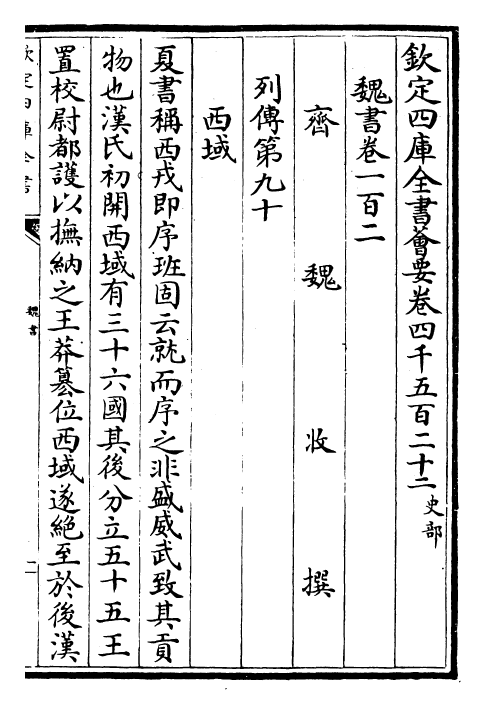 欽定四庫全書薈要卷四千五百二十二史部
魏書卷一百二
齊魏收撰
列傳第九十
西域
夏書稱西戎即序班固云就而序之非盛威武致其貢
物也漢氏初開西域有三十六國其後分立五十五王
置校尉都護以撫納之王莽篡位西域遂絕至於後漢
欽定四庫全書
魏書